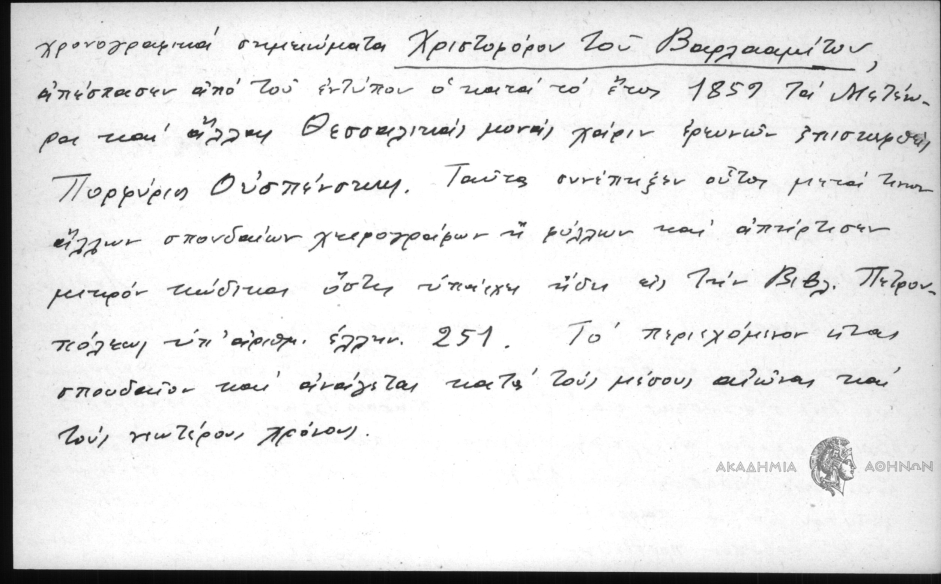 χρονογραφικά σημειώματα Χριστοφόρου τοῦ Βαρλααμίτου,
ἀπέσπασεν ἀπό τοῦ ἐντύπου ὁ κατά τό ἔτος 1859 τά Μετέω-
ρα καί ἄλλας Θεσσαλικάς μονάς χάριν ἐρευνῶν ἐπισκεφθείς
Πορφύριος Οὐσπένσκης. Ταῦτα συνέπτυξεν οὗτος μετά τινων
ἄλλων σπουδαίων χειρογράφων ἤ φύλλων καί ἀπήρτισεν
μικρόν κώδικα ὅστις ὑπάρχει ἤδη εἰς τήν Βιβλ. Πετρου-
πόλεως ὑπ' ἀριθμ. ἑλλην. 251. Τό περιεχόμενον εἶναι
σπουδαῖον καί ἀνάγεται κατά τούς μέσους αἰῶνας καί
τούς νεωτέρους χρόνους.
ΑΚΑΔΗΜΙΑ ΑΘΗΝΩΝ